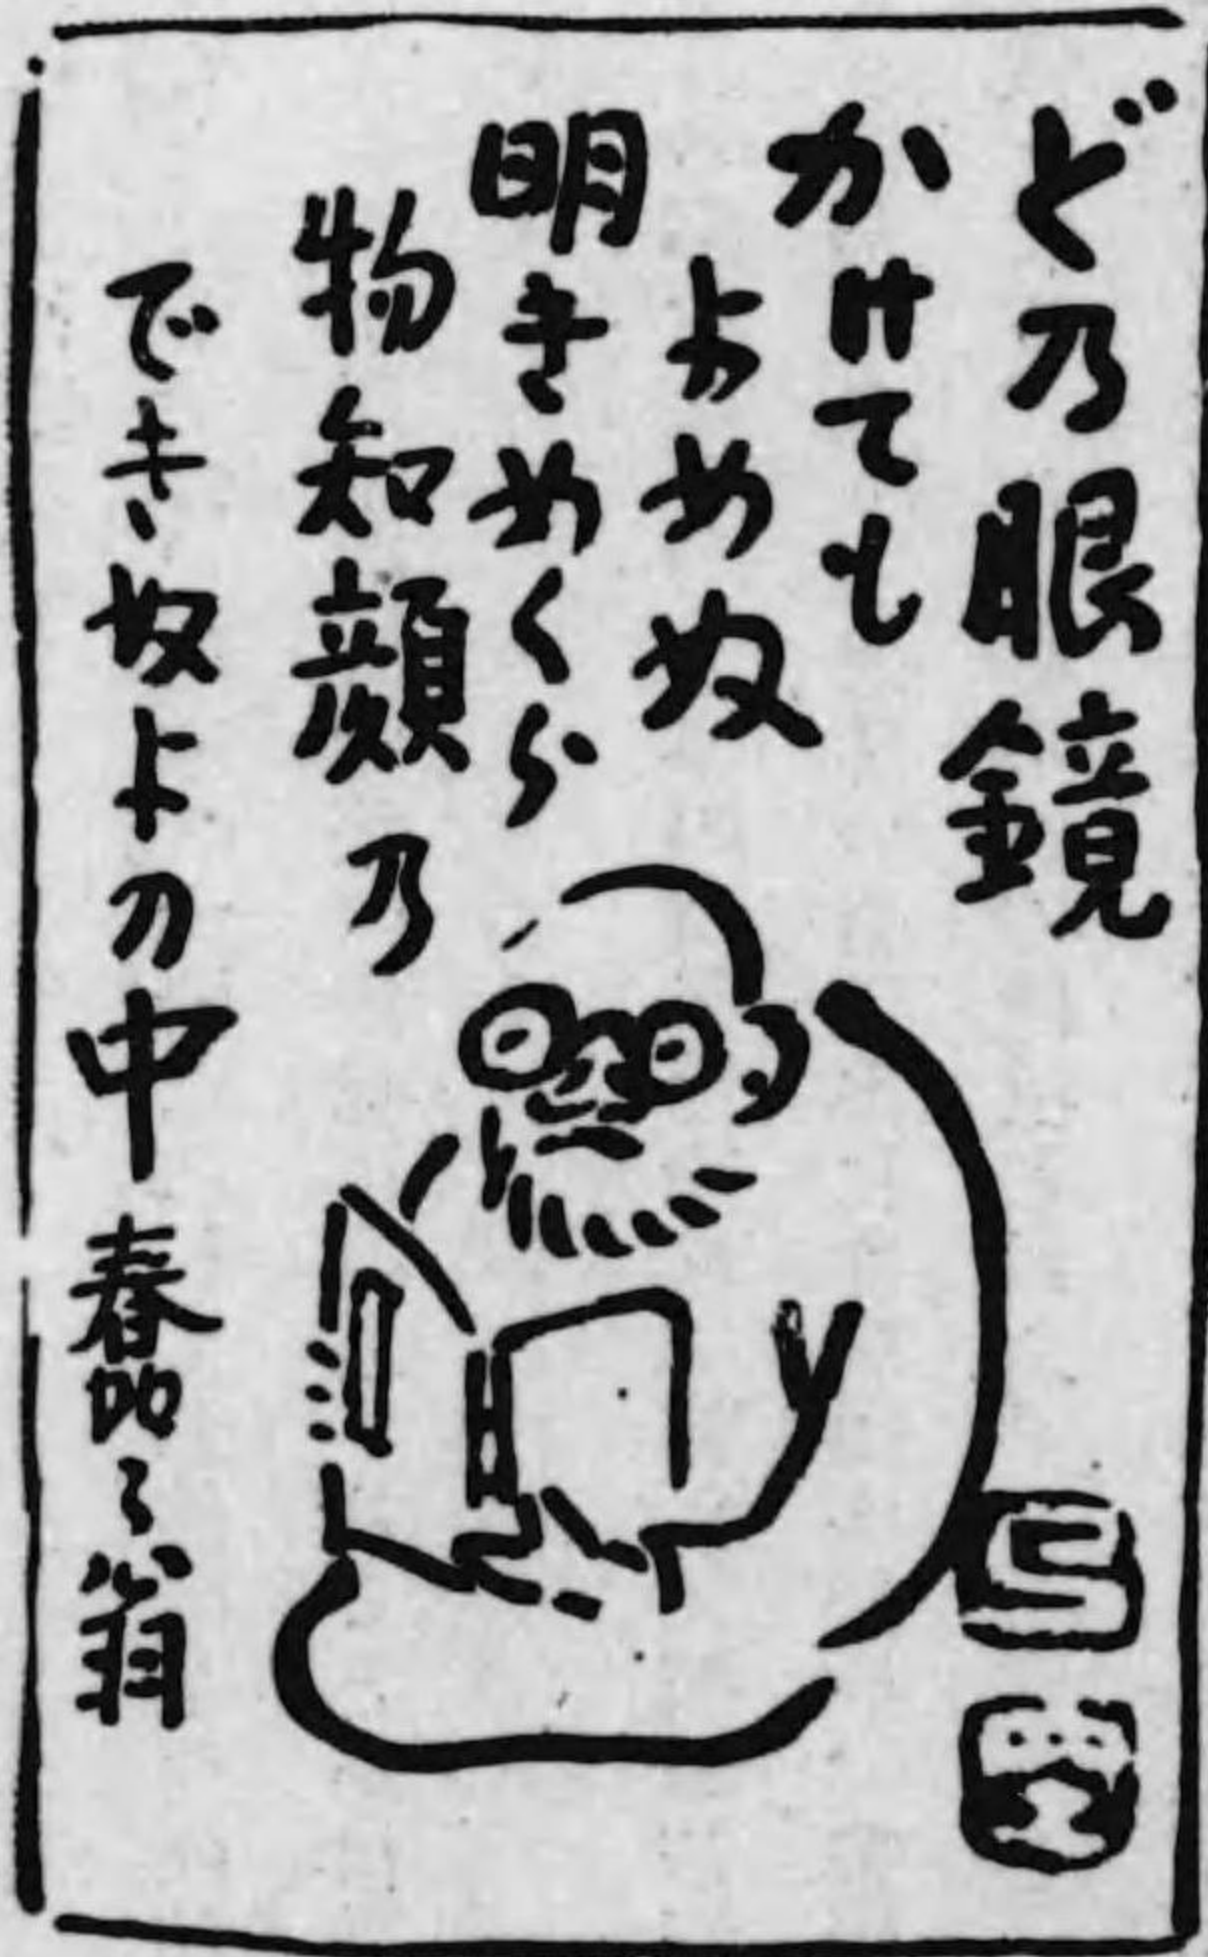 ど乃眼鏡
かけても
よめ奴
明きめくら
物知顔乃
でき奴よの中 蠢々翁